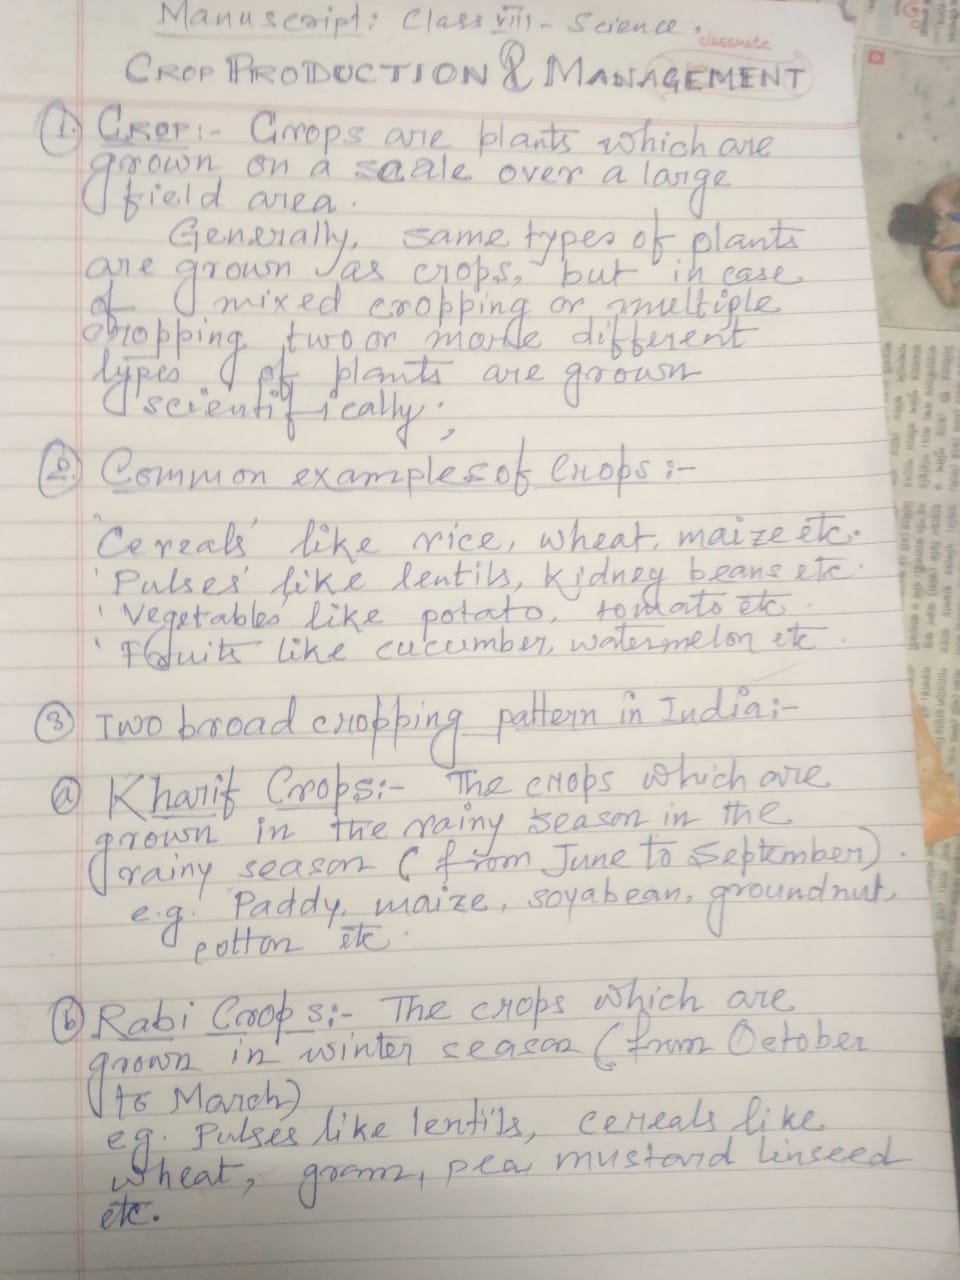 Manuscript: Class VIII - Science.
classmate
CROP PRODUCTION & MANAGEMENT
1. CROP:- Crops are plants which are
grown on a scale over a large
field area.
Generally, same types of plants
are grown as crops, but in case
of mixed cropping or multiple
cropping two or more different
types of plants are grown
scientifically.
2. Common examples of Crops :-
"Cereals' like rice, wheat, maize etc.
'Pulses' like lentils, kidney beans etc.
'Vegetables' like potato, tomato etc.
'Fruits like cucumber, watermelon etc.
3 Two broad cropping pattern in India:-
a Kharif Crops:- The crops which are
grown in the rainy season in the
rainy season (from June to September).
e.g. Paddy, maize, soyabean, groundnut,
cotton etc.
b Rabi Crops:- The crops which are
grown in winter season (from October
to March)
eg. Pulses like lentils, cereals like
wheat, gram, pea, mustard linseed
etc.